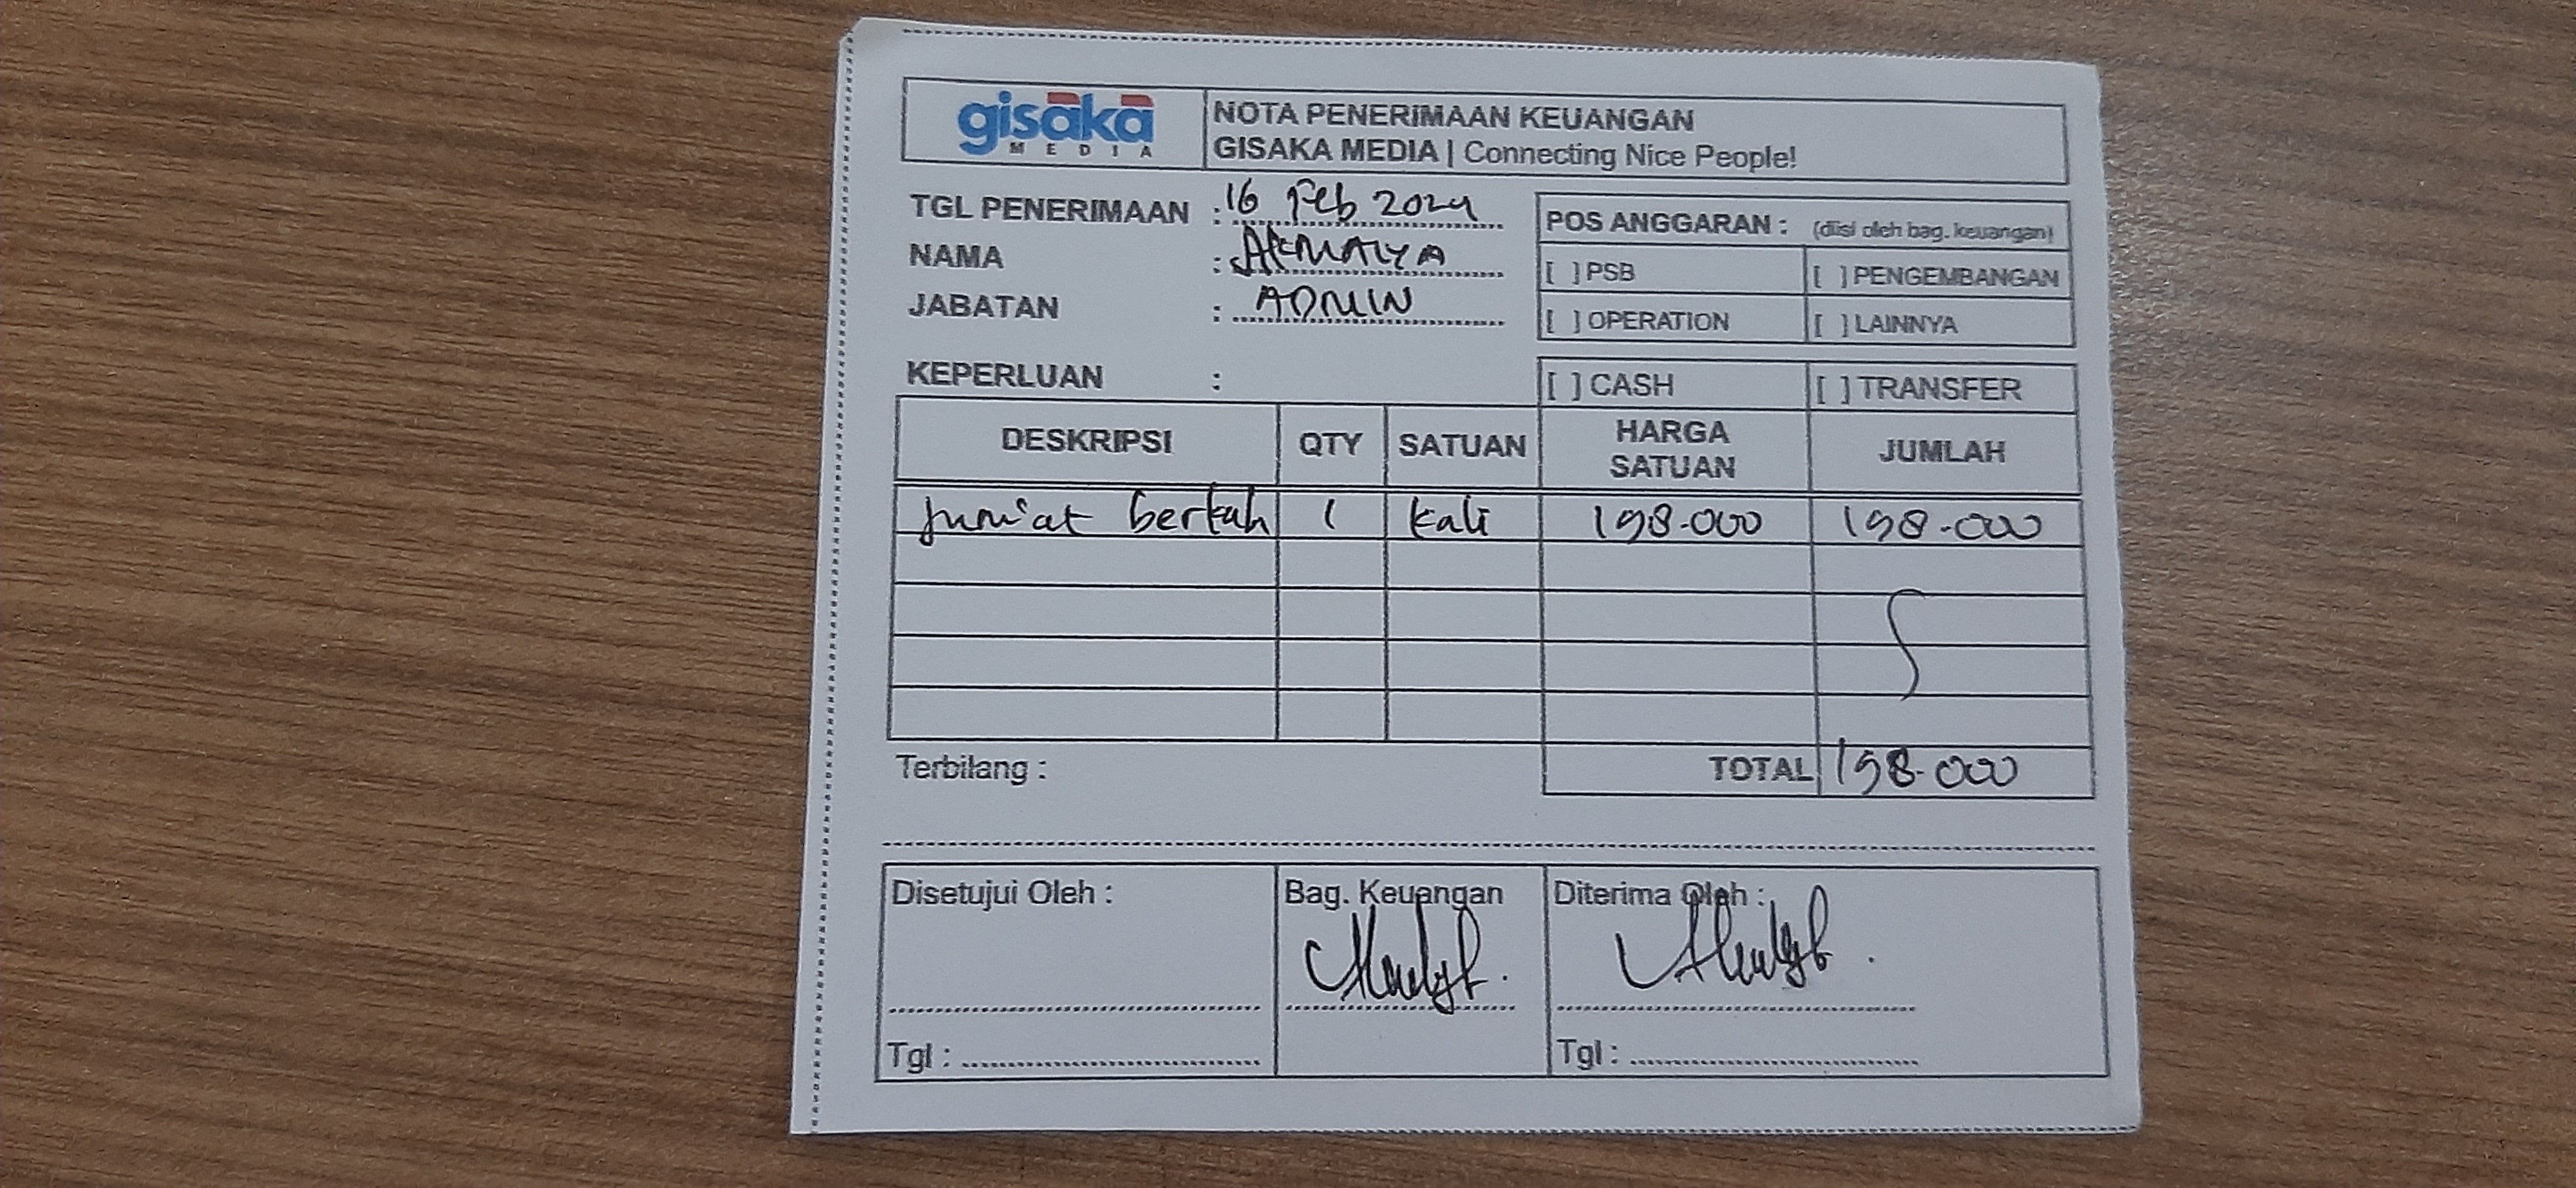 gisaka
MEDIA
NOTA PENERIMAAN KEUANGAN
GISAKA MEDIA | Connecting Nice People!
TGL PENERIMAAN : 16 Feb 2024
NAMA :
JABATAN : ADMIN
KEPERLUAN :
POS ANGGARAN : (diisi oleh bag. keuangan)
[ ] PSB [ ] PENGEMBANGAN
[ ] OPERATION [ ] LAINNYA
[ ] CASH [ ] TRANSFER
DESKRIPSI QTY SATUAN HARGA SATUAN JUMLAH
Jum'at berkah 1 kali 198.000 198.000
Terbilang :
TOTAL 198.000
Disetujui Oleh : Bag. Keuangan Diterima Oleh :
Tgl : Tgl :